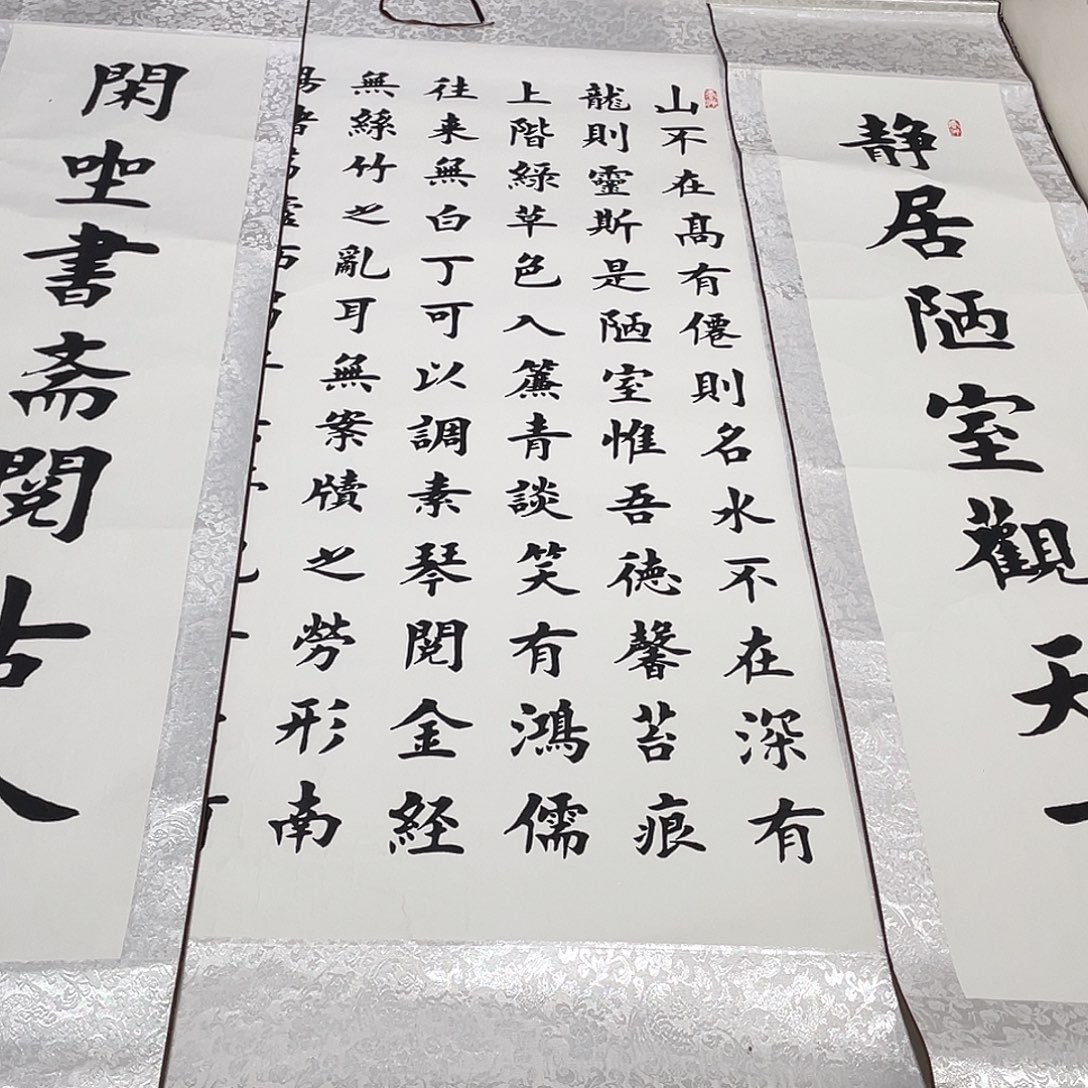 静居陋室觀天
山不在髙有僊則名水不在深有
龍則靈斯是陋室惟吾徳馨苔痕
上階緑草色入簾青談笑有鴻儒
往来無白丁可以調素琴閱金経
無絲竹之亂耳無案牘之勞形南
閑坐書斋閱古人